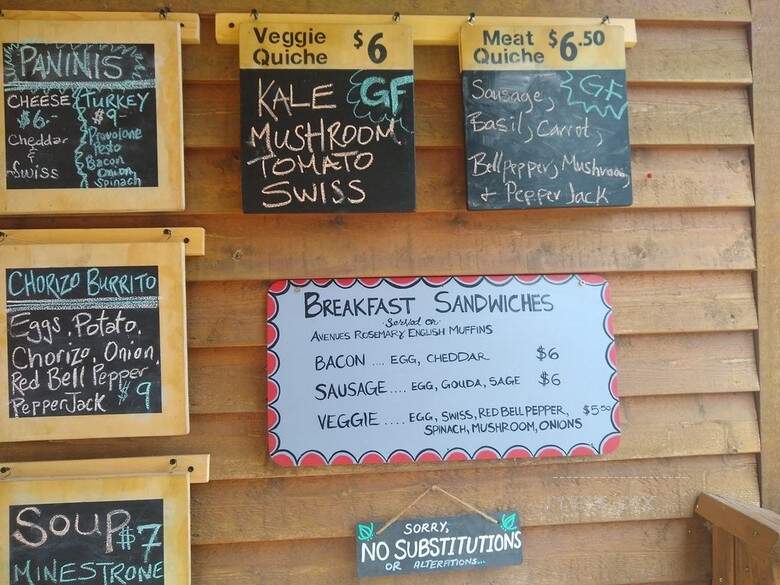 PANINIS
CHEESE
$6-
Cheddar
&
Swiss
TURKEY
$9-
Provolone
Pesto
Bacon
Onion,
Spinach
Veggie
Quiche
$6
KALE GF
MUSHROOM
TOMATO
SWISS
Meat
Quiche
$6.50
Sausage, GF
Basil, Carrot,
Bell pepper, Mushroom,
+ Pepper Jack
CHORIZO BURRITO
Eggs, Potato,
Chorizo, Onion,
Red Bell Pepper
PepperJack $9
BREAKFAST SANDWICHES
Served on:
AVENUES ROSEMARY ENGLISH MUFFINS
BACON .... EGG, CHEDDAR $6
SAUSAGE .... EGG, GOUDA, SAGE $6
VEGGIE .... EGG, SWISS, RED BELL PEPPER, $5.50
SPINACH, MUSHROOM, ONIONS
SOUP $7
MINESTRONE
SORRY,
NO SUBSTITUTIONS
OR ALTERATIONS...